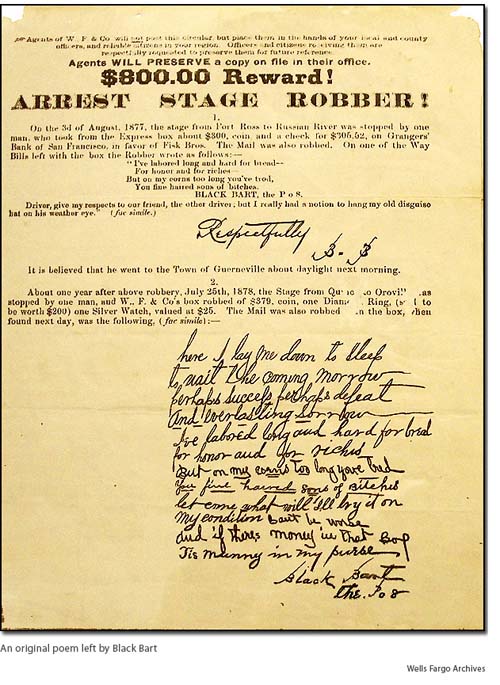 Agents of W. F. & Co. will not post this circular, but place them in the hands of your local and county
officers, and reliable citizens in your region. Officers and citizens receiving them are
respectfully requested to preserve them for future reference.
Agents WILL PRESERVE a copy on file in their office.
$800.00 Reward!
ARREST STAGE ROBBER!
1.
On the 3d of August, 1877, the stage from Fort Ross to Russian River was stopped by one
man, who took from the Express box about $300, coin, and a check for $305.52, on Grangers'
Bank of San Francisco, in favor of Fisk Bros. The Mail was also robbed. On one of the Way
Bills left with the box the Robber wrote as follows:—
"I've labored long and hard for bread—
For honor and for riches—
But on my corns too long you've trod,
You fine haired sons of bitches.
BLACK BART, the P o 8.
Driver, give my respects to our friend, the other driver; but I really had a notion to hang my old disguise
hat on his weather eye." (fac simile.)
Respectfully
B. B
It is believed that he went to the Town of Guerneville about daylight next morning.
2.
About one year after above robbery, July 25th, 1878, the Stage from to
stopped by one man, and W., F. & Co's box robbed of $379, coin, one Ring, to
be worth $200) one Silver Watch, valued at $25. The Mail was also robbed the box,
found next day, was the following, (fac simile):—
here I lay me down to sleep
to wait the coming morrow
perhaps success perhaps defeat
And everlasting sorrow
I've labored long and hard for bred
for honor and for riches
But on my corns too long youve tred
You fine haired sons of Bitches
let come what will I'll try it on
My condition cant be worse
and if theres money in that Box
Tis munny in my purse
Black Bart
the Po 8
An original poem left by Black Bart
Wells Fargo Archives